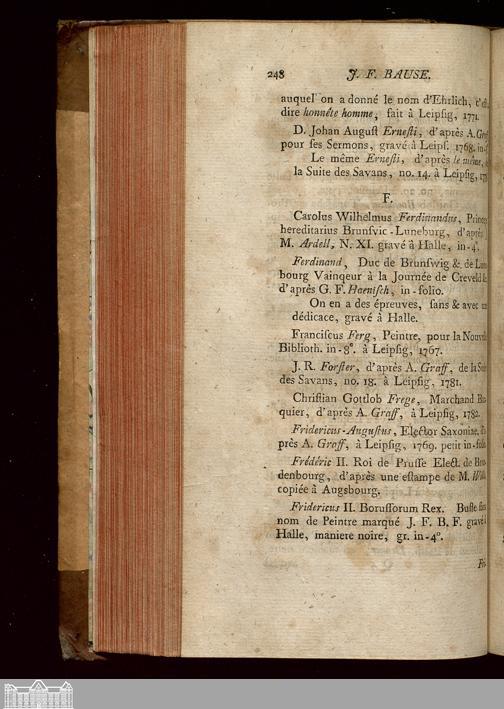 248 J. F. BAUSE.
auquel on a donné le nom d'Ehrlich,
dire honnête homme, fait à Leipſig, 1771.
D. Johan Auguſt Erneſti, d'après A.
pour ſes Sermons, gravé à Leipſ. 1768.
Le même Erneſti, d'après le même,
la Suite des Savans, no. 14. à Leipſig,
F.
Carolus Wilhelmus Ferdinandus,
hereditarius Brunſvic-Luneburg, d'après
M. Ardell, N. XI. gravé à Halle, in-4°.
Ferdinand, Duc de Brunſwig &. de
bourg Vainqeur à la Journée de Creveld
d'après G. F. Haeniſch, in-folio.
On en a des épreuves, ſans & avec
dédicace, gravé à Halle.
Franciſcus Ferg, Peintre, pour la
Biblioth. in-8°. à Leipſig, 1767.
J. R. Forſter, d'après A. Graff, de la
des Savans, no. 18. à Leipſig, 1781.
Chriſtian Gottlob Frege, Marchand
quier, d'après A. Graff, à Leipſig, 1782.
Fridericus-Auguſtus, Elector Saxoniae,
près A. Graff, à Leipſig, 1769. petit in-
Frédéric II. Roi de Pruſſe Elect. de
denbourg, d'après une eſtampe de M.
copiée à Augsbourg.
Fridericus II. Boruſſorum Rex. Buſte
nom de Peintre marqué J. F. B. F. gravé
Halle, maniere noire, gr. in-4°.